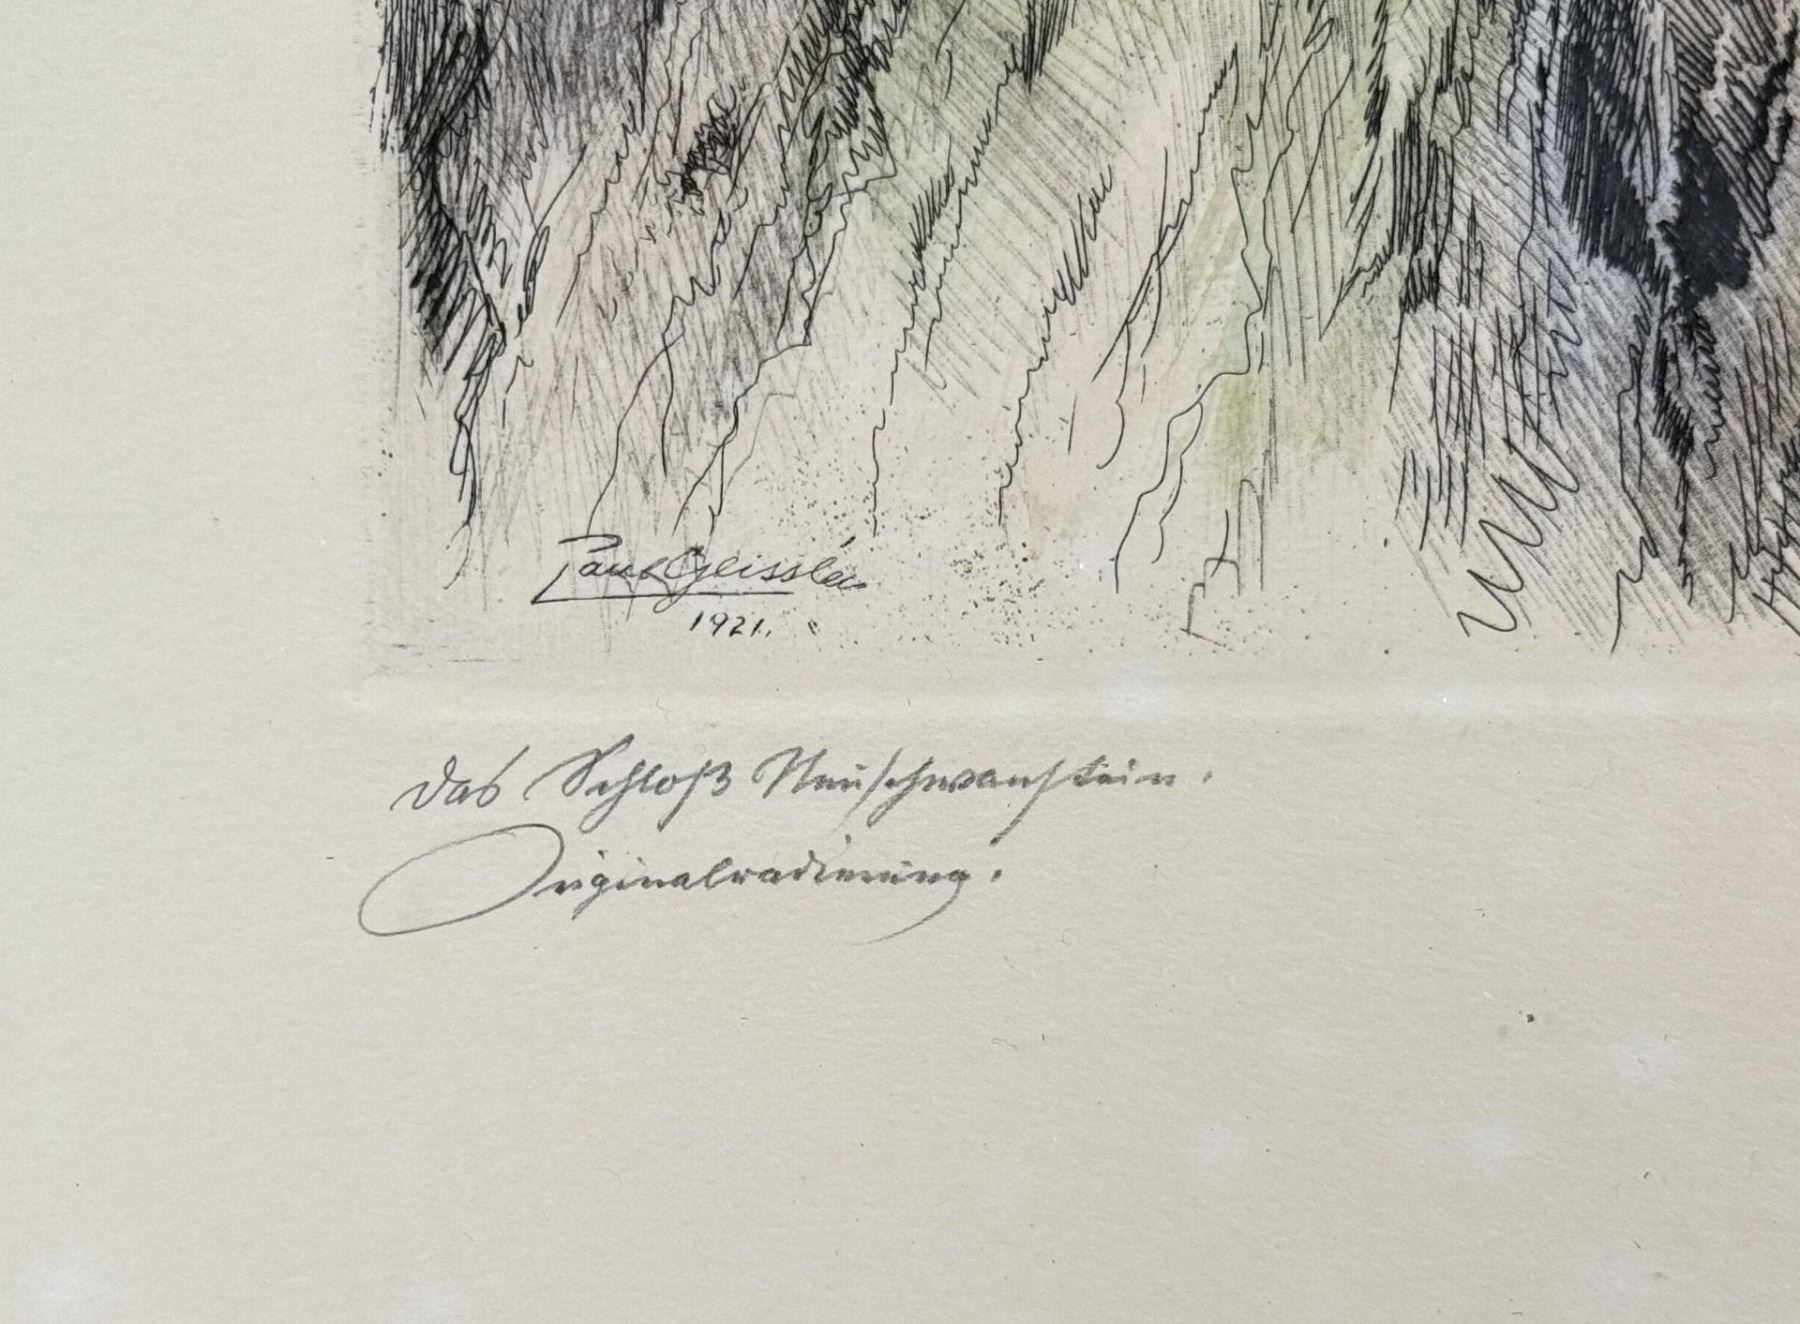 Paul Geissler
1921.
Das Schloß Neuschwanstein.
Originalradierung.